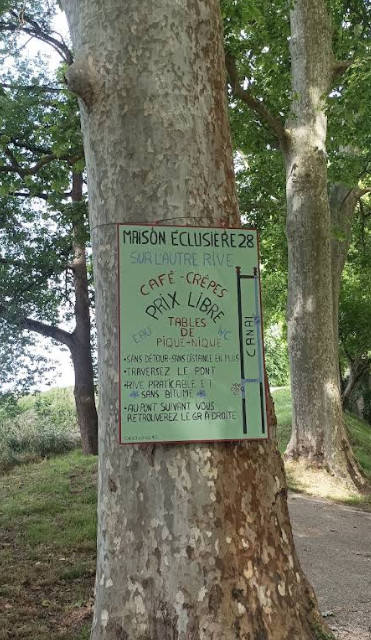 MAISON ÉCLUSIERE 28
SUR L'AUTRE RIVE
CAFÉ - CRÊPES
PRIX LIBRE
EAU
TABLES
WC
DE
PIQUE-NIQUE
CANAL
• SANS DÉTOUR - SANS DISTANCE EN PLUS
• TRAVERSEZ LE PONT
• RIVE PRATICABLE ET
SANS BITUME
• AU PONT SUIVANT VOUS
RETROUVEREZ LE GR À DROITE